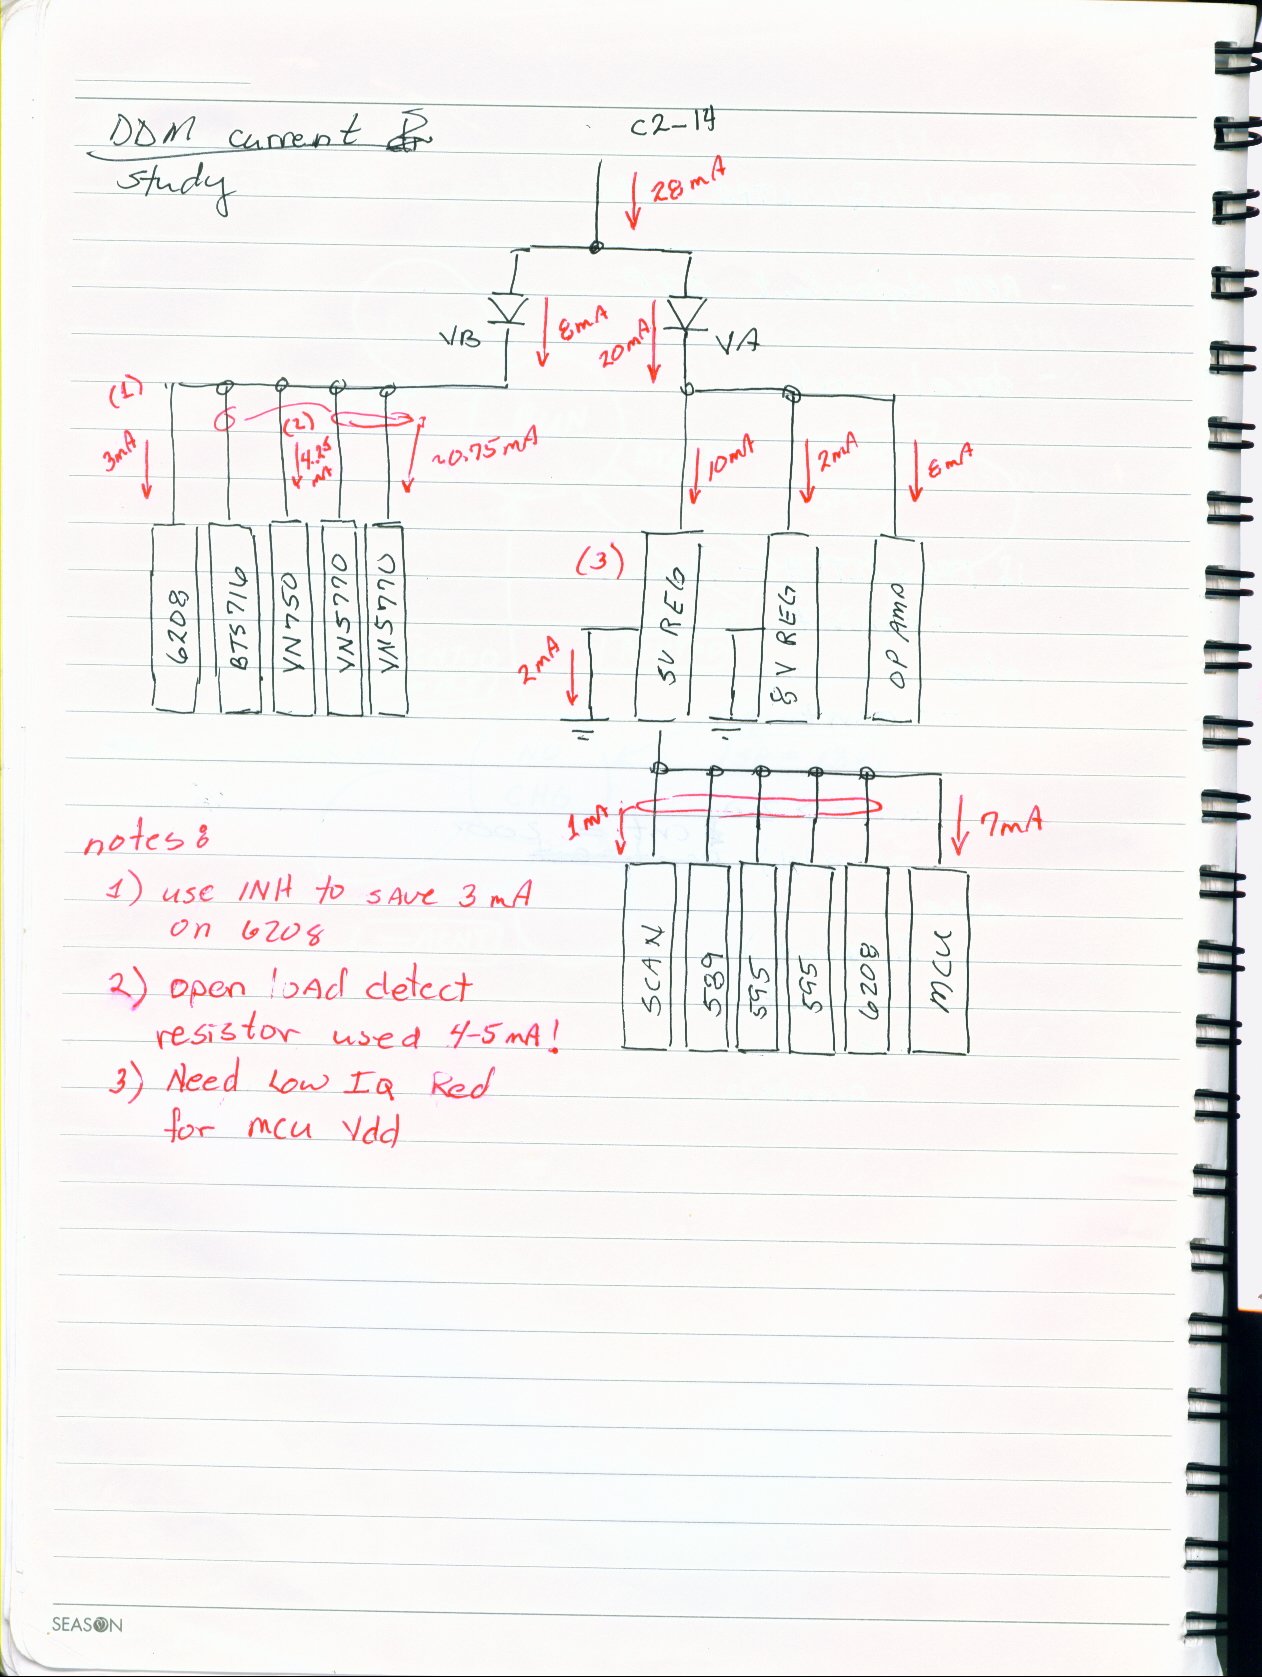 DDM current
study
C2-14
28mA
VB
8mA
20mA
VA
(1)
(2)
3mA
4.25
mA
~0.75mA
10mA
2mA
8mA
6208
BTS716
VN750
VN5770
VN5770
(3)
5V REG
8V REG
OP Amp
2mA
1mA
7mA
SCAN
589
595
595
6208
MCU
notes:
1) use INH to sAve 3mA
on 6208
2) open loAd detect
resistor used 4-5mA!
3) Need Low IQ Red
for mcu Vdd
SEASON